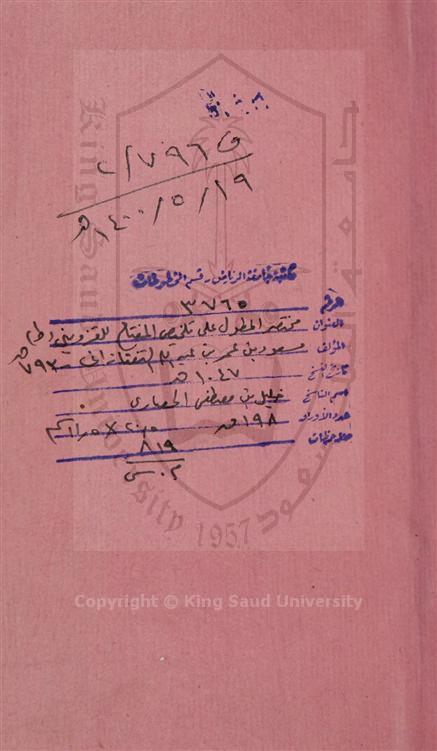 ف ٧٩٦/٢
١٤٠٠/٥/١٩ هـ
مكتبة جامعة الرياض - قسم المخطوطات
الرقم ٣٧٦٥
العنوان مختصر المطول على تلخيص المفتاح للقزويني
المؤلف مسعود بن عمر بن عبد الله التفتازاني - ٧٩٣ هـ
تاريخ النسخ ١٠٤٧ هـ
اسم الناسخ خليل بن مصطفى الحصاري
عدد الأوراق ١٩٨
ملاحظات
٨١٩
King Saud University 1957
Copyright © King Saud University